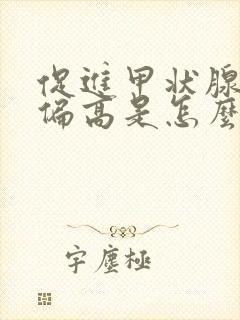 促進甲状腺
偏高是怎麼
字塵極